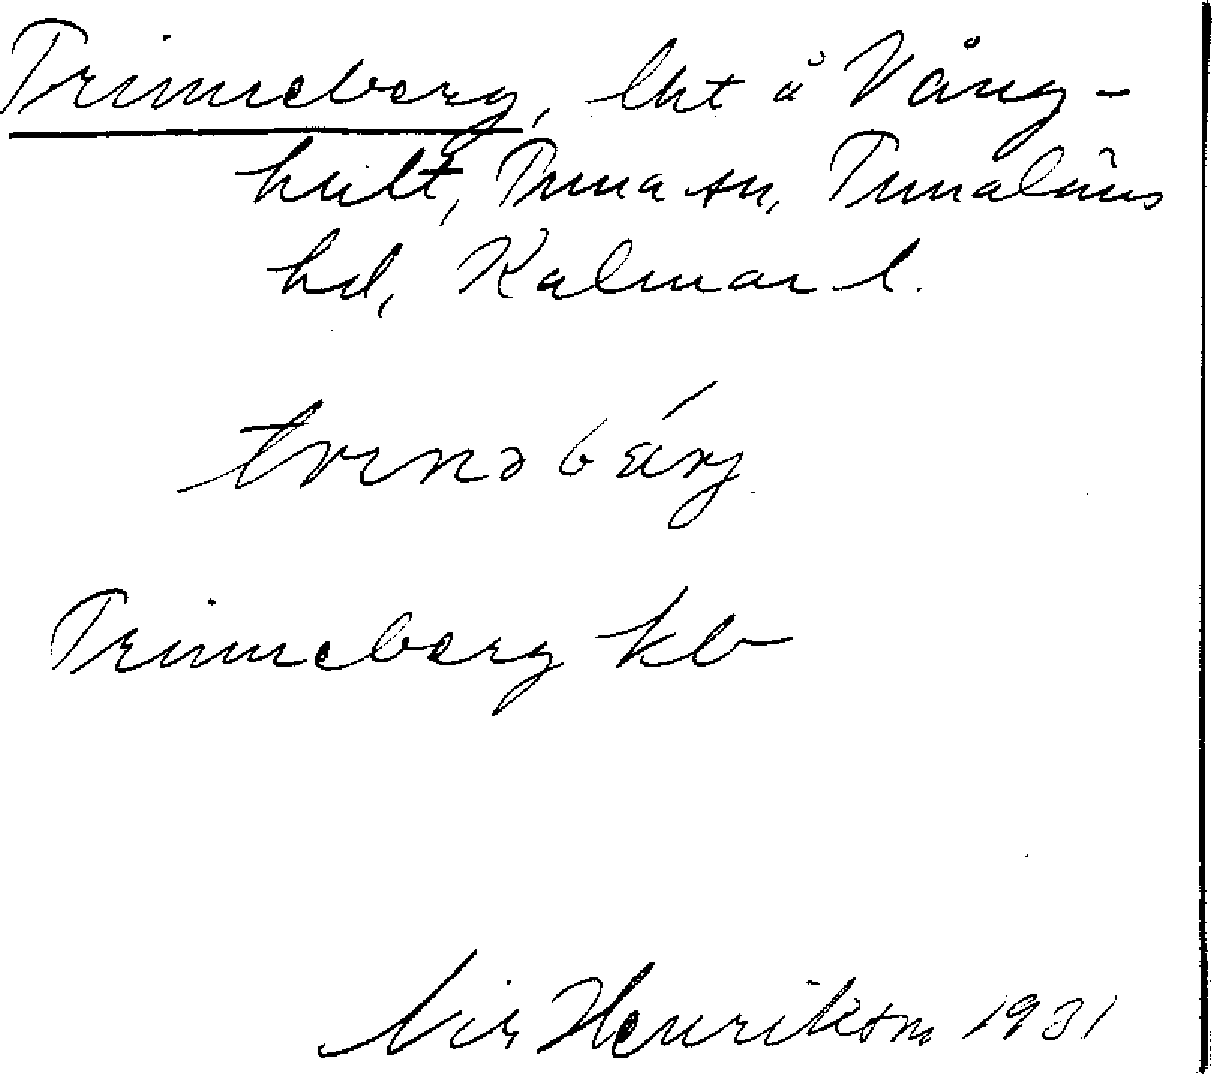 Trinneberg, lht å Vång-
hult, Tuna sn, Tunaläns
hd, Kalmar l.
trınəbärj
Trinneberg kb
Henrikson 1931